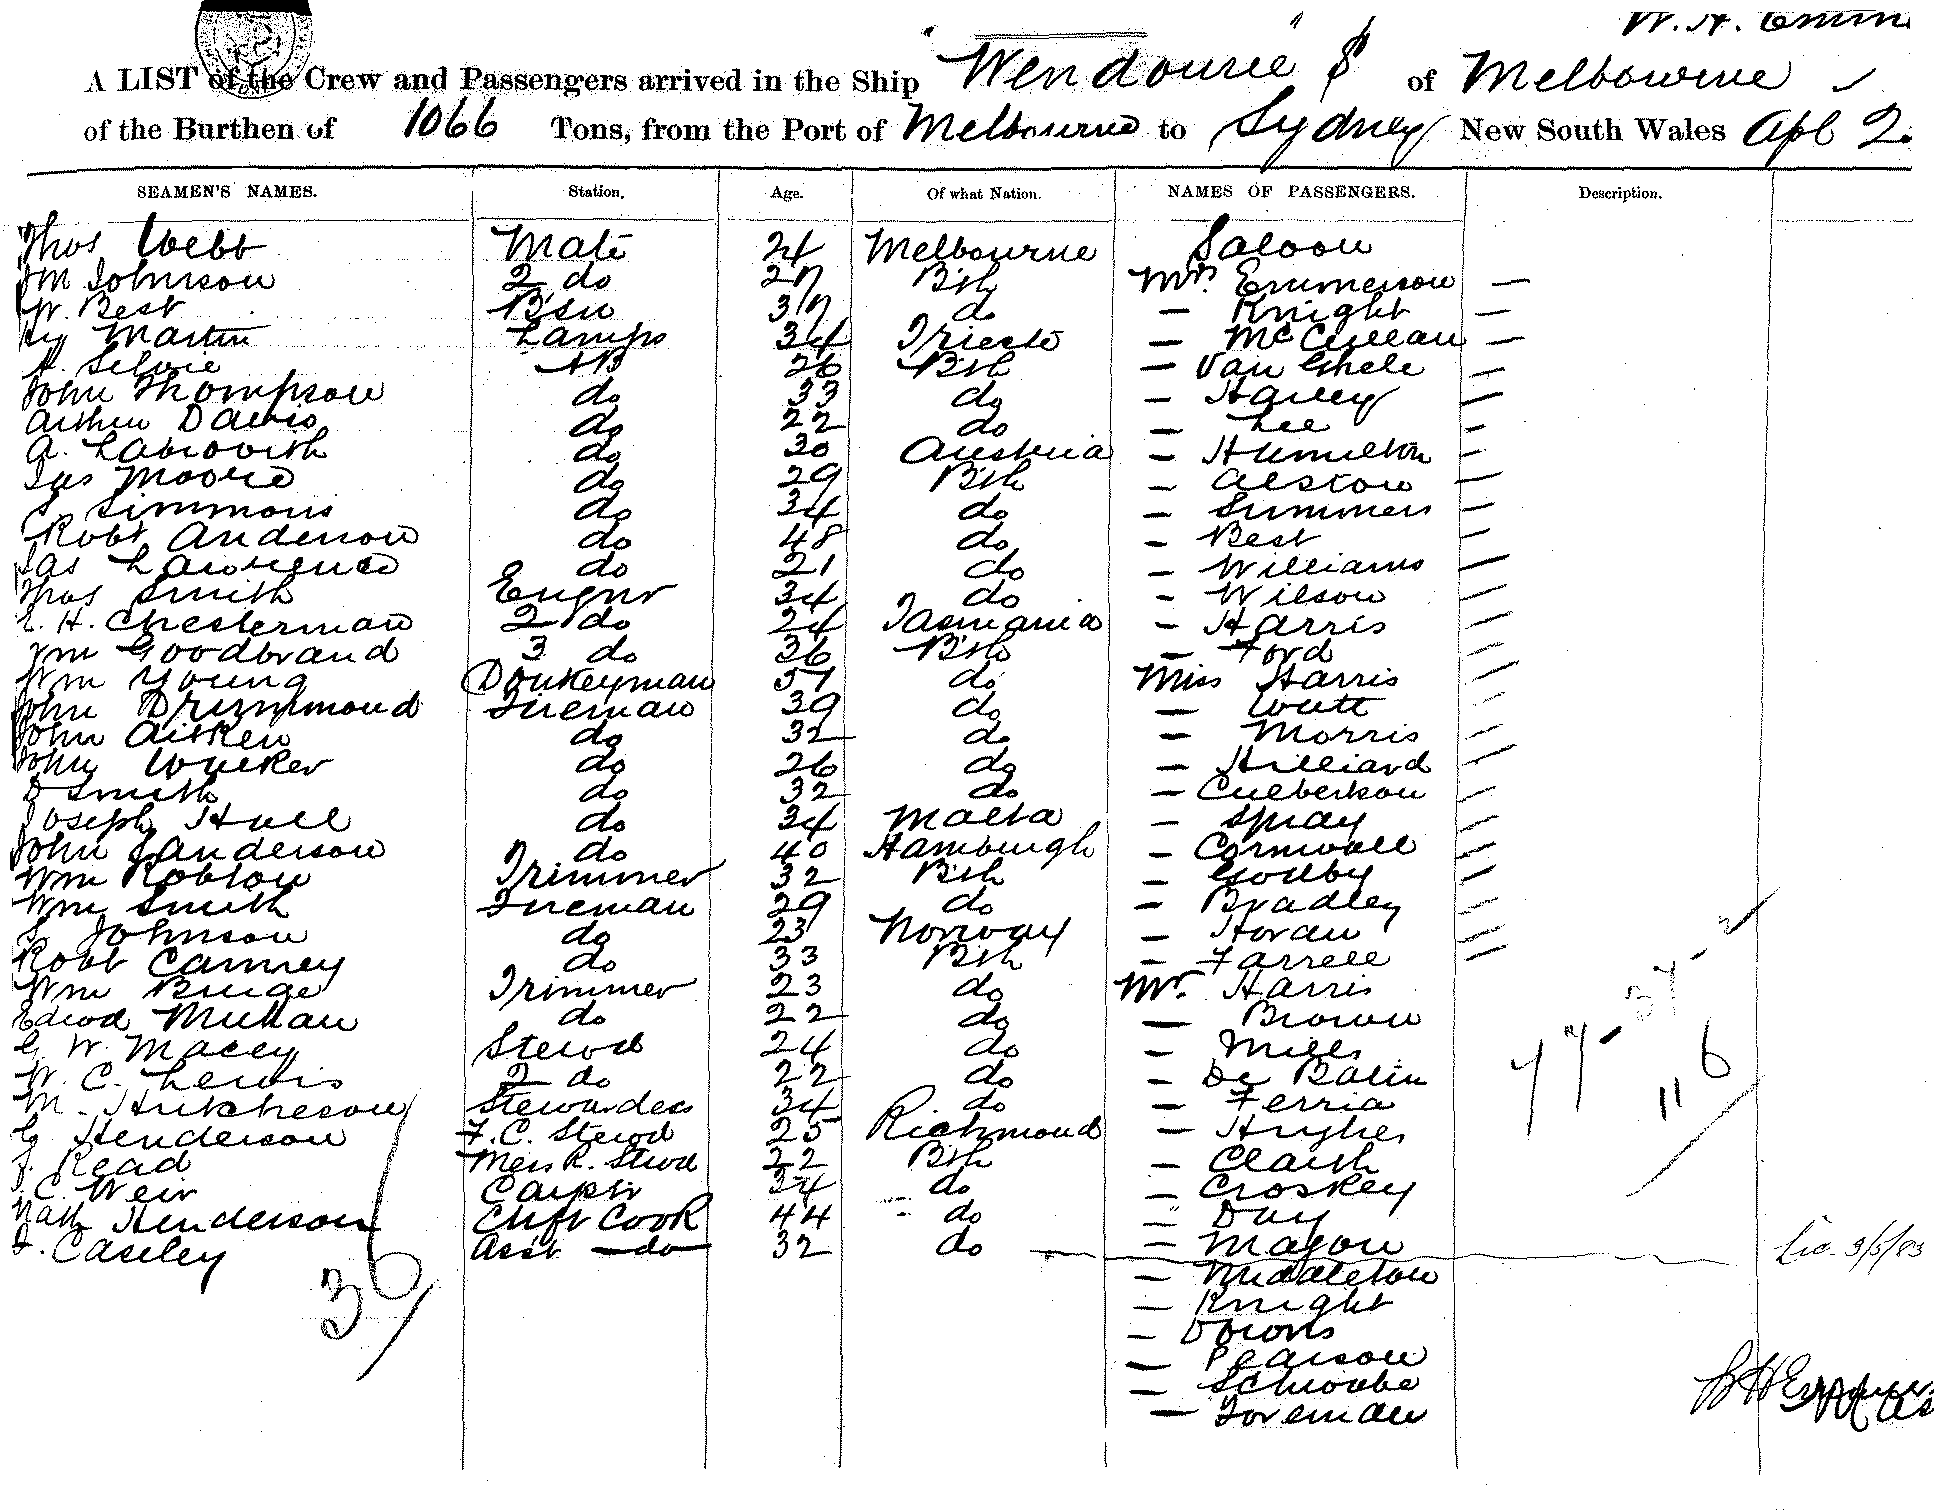 W. H.
A LIST of the Crew and Passengers arrived in the Ship "Wendouree" S of Melbourne
of the Burthen of 1066 Tons, from the Port of Melbourne to Sydney New South Wales Apl 2.
SEAMEN'S NAMES. Station. Age. Of what Nation. NAMES OF PASSENGERS. Description.
Thos Webb Mate 24 Melbourne Saloon
Wm Johnson 2 do 27 Bsh Mrs Emmerson —
W. Best Bsn 37 do — Knight —
Martin Lamps 34 Trieste — McCullan —
A. Selvie AB 26 Bsh — Van Ghele —
John Thompson do 33 do — Harley —
Arthur Davis do 22 do — Lee —
A. Labrovith do 30 Austria — Hamilton —
Jas Moore do 29 Bsh — Alston —
S. Simmons do 34 do — Summers —
Robt Anderson do 48 do — Best —
Jas Lawrence do 21 do — Williams —
Thos Smith Enginr 34 do — Wilson —
E. H. Chesterman 2 do 24 Tasmania — Harris —
Wm Goodbrand 3 do 36 Bsh — Ford —
Wm Young Donkeyman 37 do Miss Harris —
John Drummond Fireman 39 do — Watt —
John Aitken do 32 do — Morris —
John Walker do 26 do — Hilliard —
D Smith do 32 do — Culbertson —
Joseph Hall do 34 Malta — Spray —
John Sanderson do 40 Hamburgh — Cornwall —
Wm Robson Trimmer 32 Bsh — —
Wm Smith Fireman 29 do — Bradley —
S. Johnson do 23 Norway — Horan —
Robt Canney do 33 Bsh — Farrell —
Wm Trimmer 23 do Mr. Harris
Edwd Mullan do 22 do — Brown
G. W. Macey Stewd 24 do — Mills
W. C. Lewis 2 do 22 do — De Balin
M. Hutcheson Stewardess 34 do — Ferria
G Henderson F. C. Stewd 25 Richmond — Hughes
J. Read Mess R. Stewd 22 Bsh —
J. C. Weir Carptr 34 do — Croskey
Nath Henderson Chf Cook 44 do — Day
J. Caseley Asst do 32 do — Mason
— Middleton
— Knight
— Downs
— Pearson
— Schwabe
— Foreman
36
77 - 37 - 2
116
3/5/83